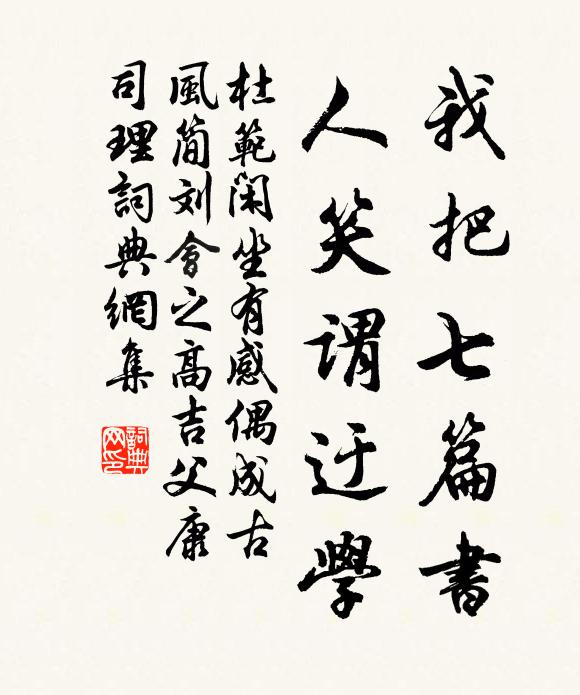 我把七篇書
人笑謂迂學
杜範閑坐有感偶成古
風簡刘會之高吉父康
司理詞典網集
詞典
网印